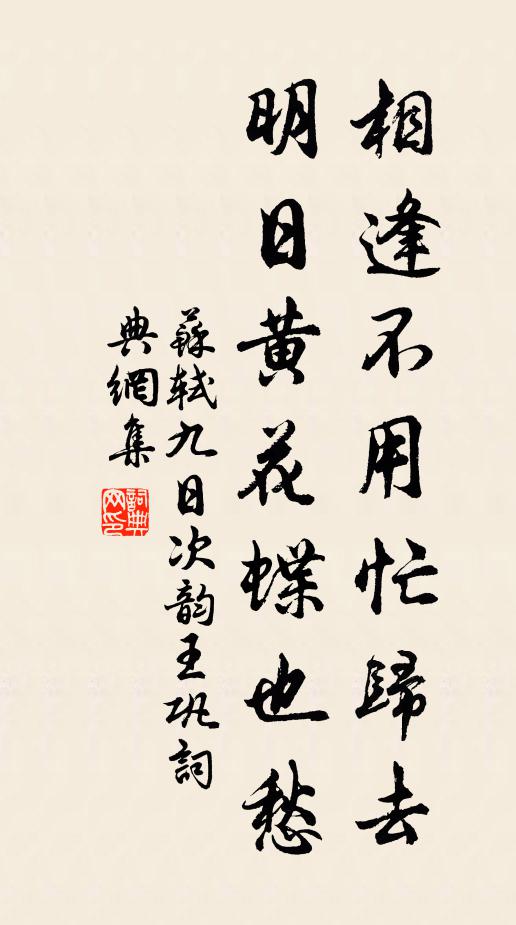 相逢不用忙歸去
明日黄花蝶也愁
蘇軾九日次韵王巩詞
典網集
詞典网印